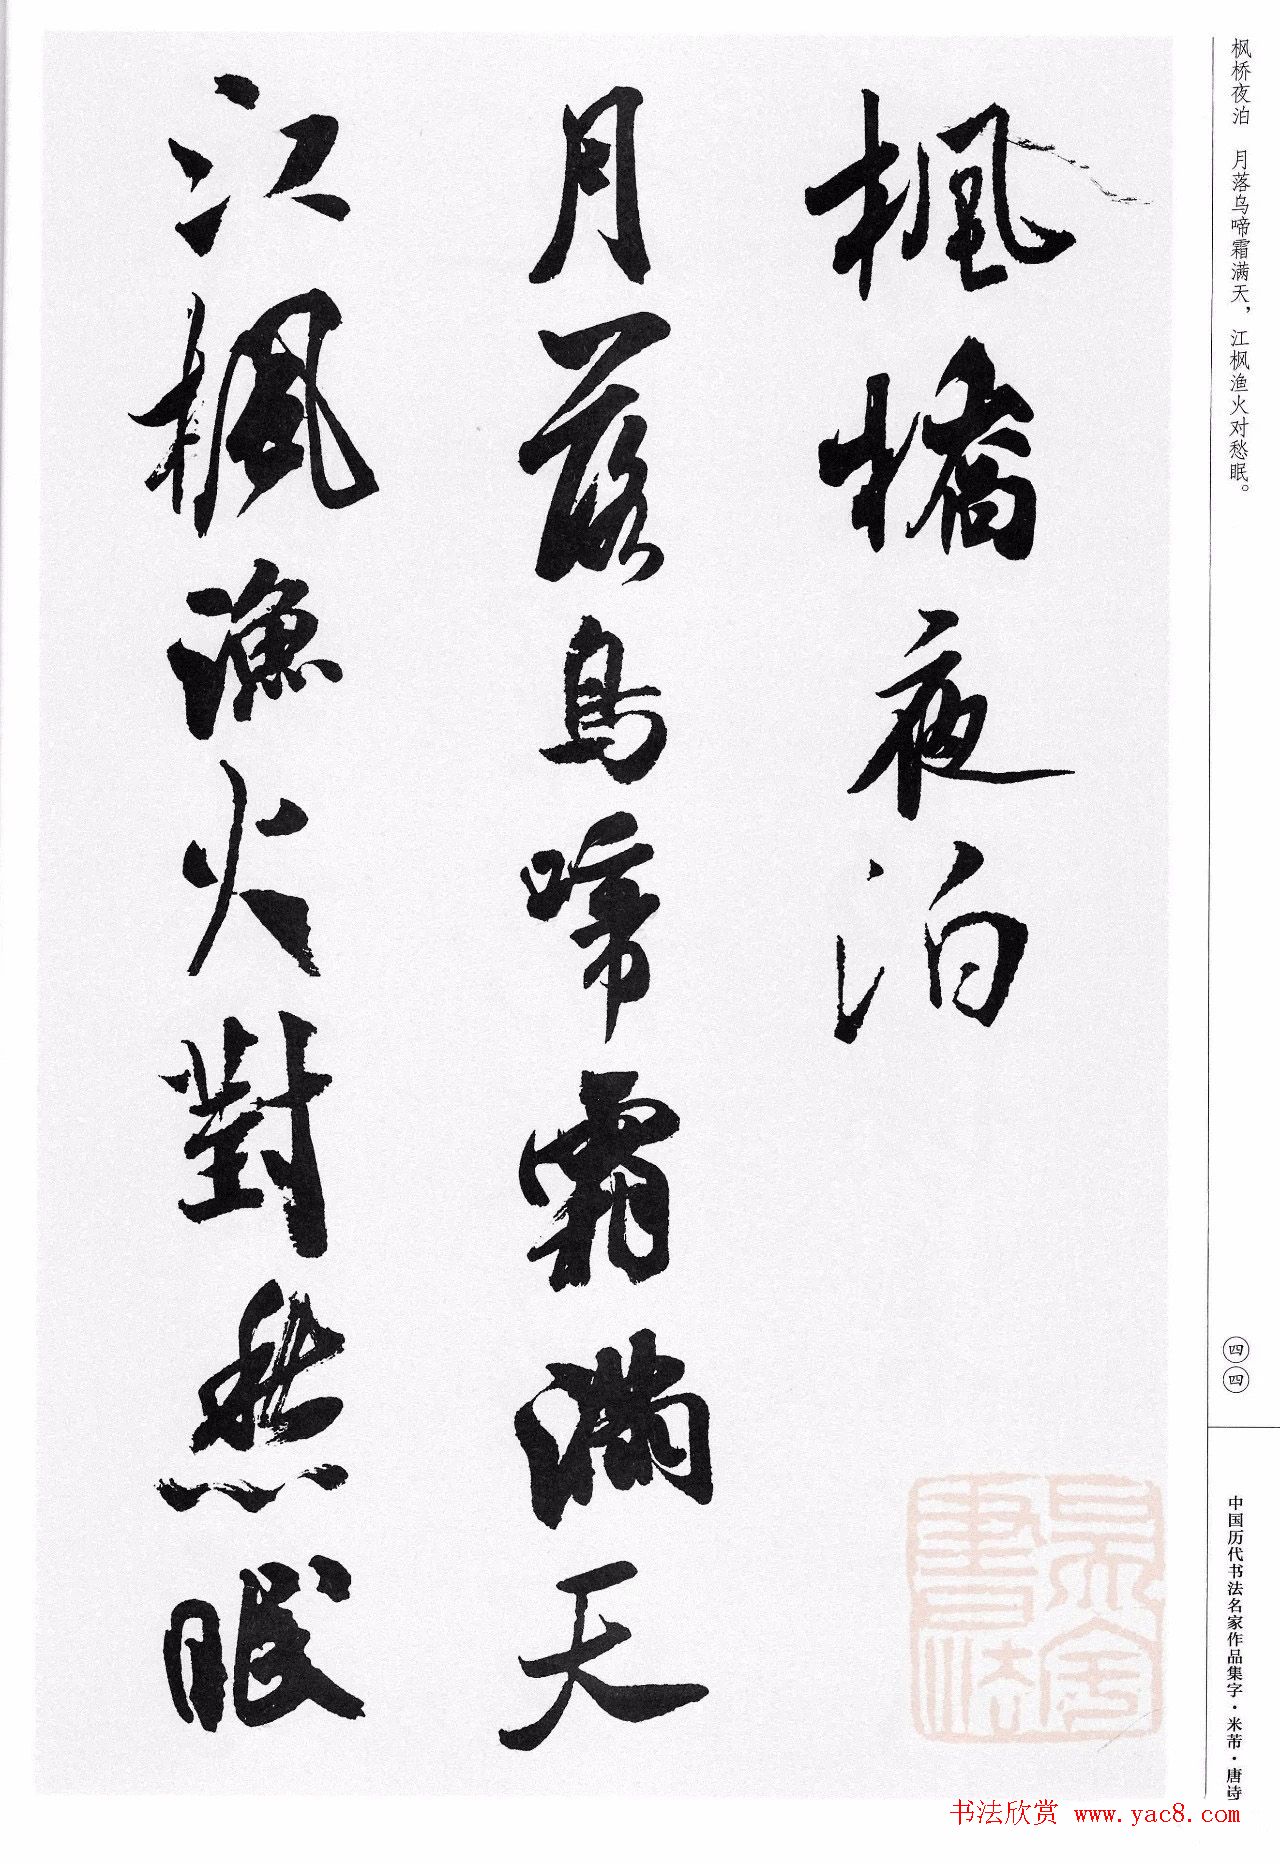 枫桥夜泊　月落乌啼霜满天，江枫渔火对愁眠。
楓橋夜泊
月落烏啼霜滿天
江楓漁火對愁眠
四四
中国历代书法名家作品集字·米芾·唐诗
书法欣赏 www.yac8.com